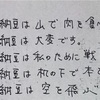 納豆は山で肉を食
納豆は大変です。
納豆は私のために戦
納豆は机の下で本
納豆は空を飛ぶ